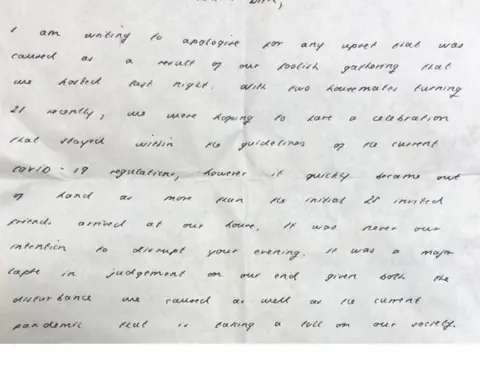 I am writing to apologise for any upset that was
caused as a result of our foolish gathering that
we hosted last night. With two housemates turning
21 recently, we were hoping to have a celebration
that stayed within the guidelines of the current
COVID-19 regulations, however it quickly became out
of hand as more than the initial 25 invited
friends arrived at our house. It was never our
intention to disrupt your evening. It was a major
lapse in judgement on our end given both the
disturbance we caused as well as the current
pandemic that is taking a toll on our society.